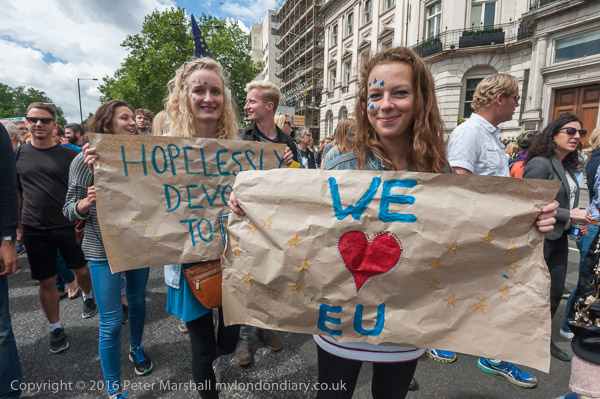 HOPELESSLY
DEVO
TO
WE
EU
Copyright © 2016 Peter Marshall mylondondiary.co.uk